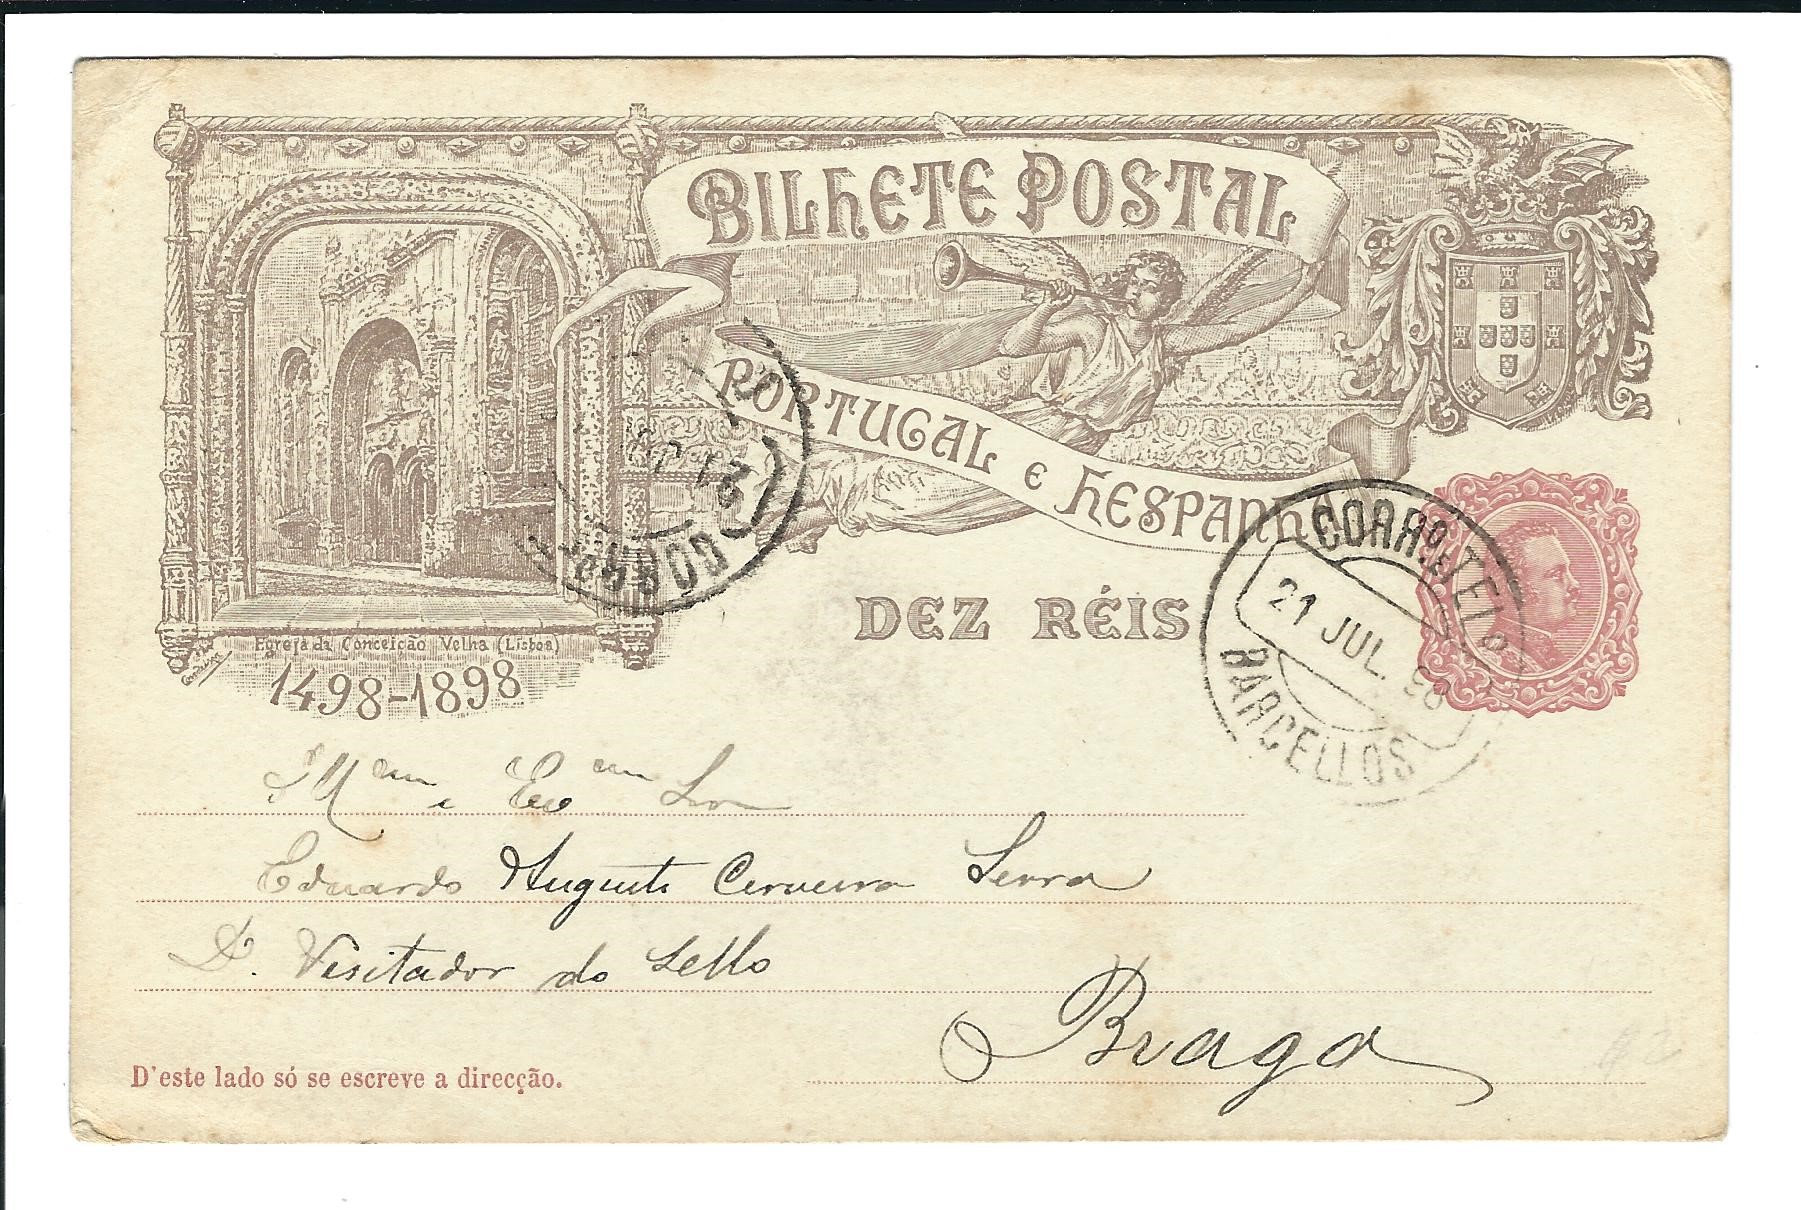 BILHETE POSTAL
PORTUGAL E HESPANHA
DEZ RÉIS
Egreja da Conceição Velha (Lisboa)
1498-1898
CORRO E TELO
21 JUL. 98
BARCELLOS
CORR
21 JUL
Illmo e Exmo Snr
Eduardo Augusto Cerveira Serra
D. Visitador do Sello
Braga
D'este lado só se escreve a direcção.